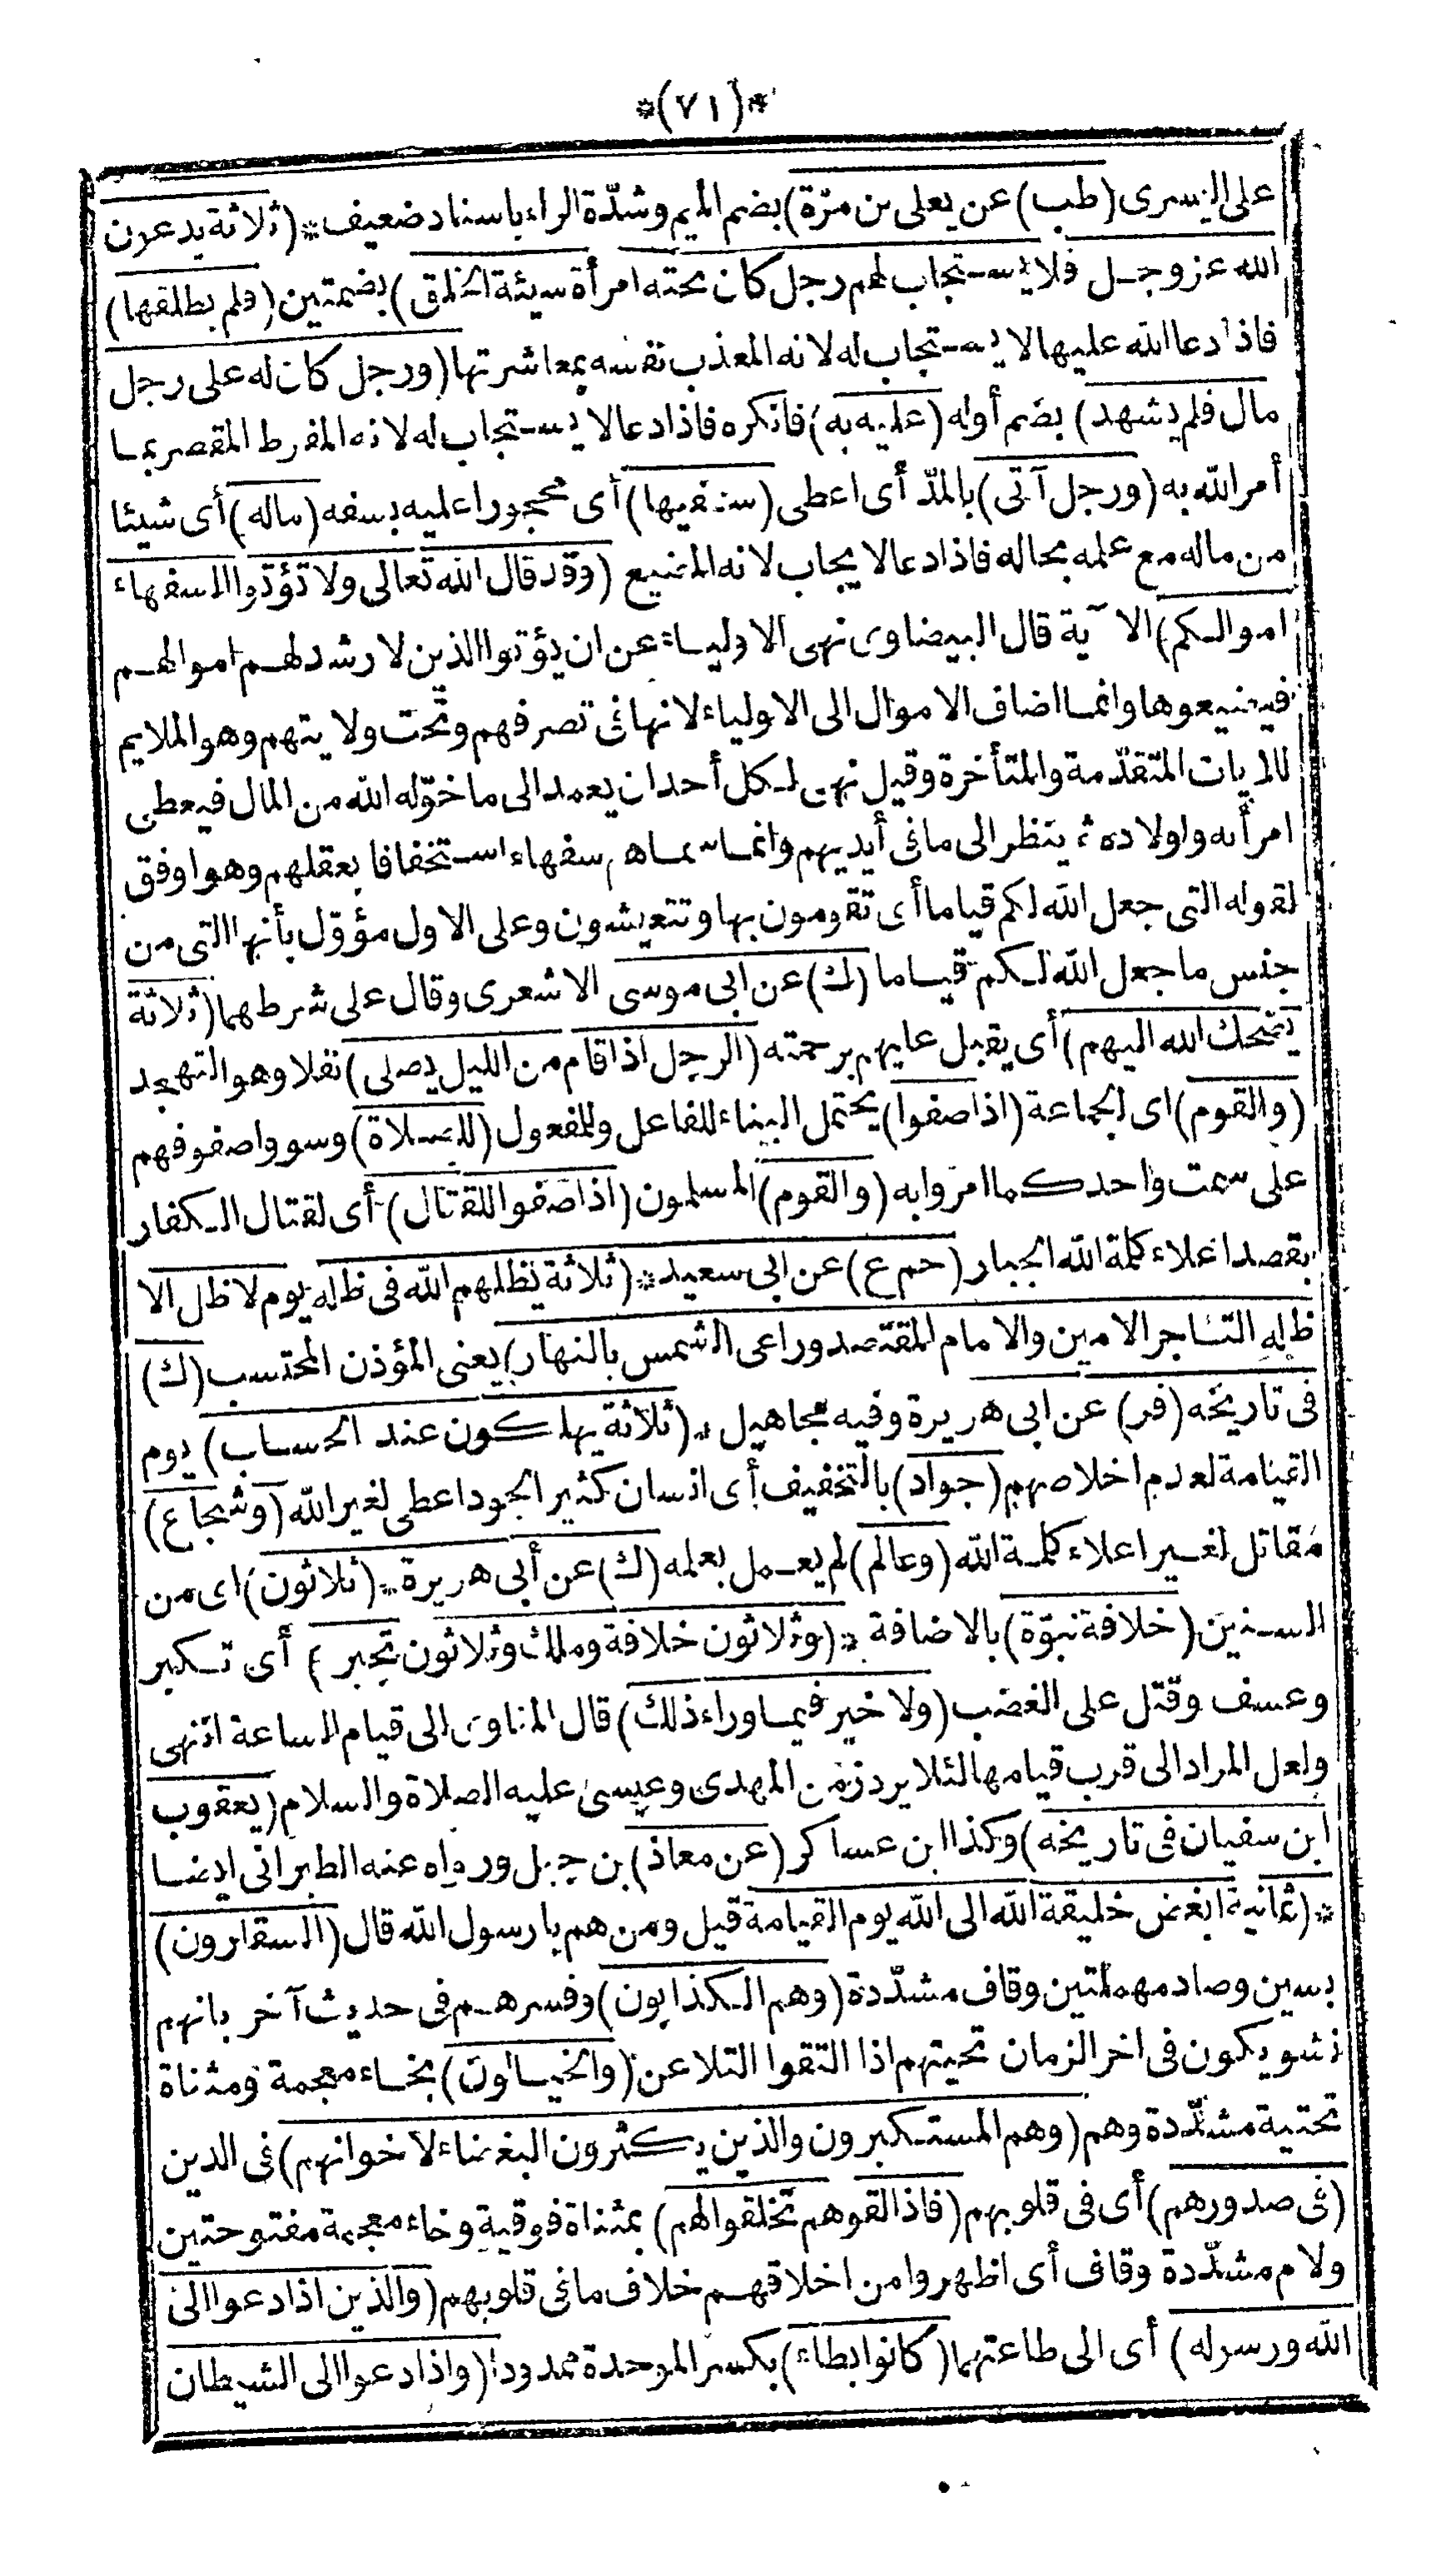 *(٧١)*
على اليسرى (طب) عن يعلى بن مرّة) بضم الميم وشدّة الراء باسناد ضعيف * (ثلاثة يدعون
الله عز وجل فلا يستجاب لهم رجل كان تحته امرأة سيئة الخلق) بضمتين (فلم يطلقها)
فاذا دعا الله عليها لا يستجاب له لانه المعذب نفسه بمعاشرتها (ورجل كان له على رجل
مال فلم يشهد) بضم أوله (عليه به) فانكره فاذا دعا لا يستجاب له لانه المفرط المقصر بما
أمر الله به (ورجل آتى) بالمدّ أى اعطى (سفيها) أى محجورا عليه بسفه (ماله) أى شيئا
من ماله مع علمه بحاله فاذا دعا لا يجاب لانه المضيع (وقد قال الله تعالى ولا تؤتوا السفهاء
اموالكم) الآية قال البيضاوى نهى الاولياء عن ان يؤتوا الذين لا رشد لهم اموالهم
فيضيعوها وانما اضاف الاموال الى الاولياء لانها فى تصرفهم وتحت ولايتهم وهو الملايم
للآيات المتقدّمة والمتأخرة وقيل نهى لكل أحد ان يعمد الى ما خوّله الله من المال فيعطى
امرأته واولاده ثم ينظر الى ما فى أيديهم وانما سماهم سفهاء استخفافا بعقلهم وهو اوفق
لقوله التى جعل الله لكم قياما أى تقومون بها وتتعيشون وعلى الاول مؤوّل بأنها التى من
جنس ما جعل الله لكم قياما (ك) عن ابى موسى الاشعرى وقال على شرطهما (ثلاثة
يضحك الله اليهم) أى يقبل عليهم برحمته (الرجل اذا قام من الليل يصلى) نفلا وهو التهجد
(والقوم) اى الجماعة (اذا صفوا) يحتمل البناء للفاعل وللمفعول (للصلاة) وسووا صفوفهم
على سمت واحد كما امروا به (والقوم) المسلمون (اذا صفوا للقتال) أى لقتال الكفار
بقصد اعلاء كلمة الله الجبار (حم ع) عن ابى سعيد * (ثلاثة يظلهم الله فى ظله يوم لا ظل الا
ظله التاجر الامين والامام المقتصد وراعى الشمس بالنهار) يعنى المؤذن المحتسب (ك)
فى تاريخه (فر) عن ابى هريرة وفيه مجاهيل * (ثلاثة يهلكون عند الحساب) يوم
القيامة لعدم اخلاصهم (جواد) بالتخفيف أى انسان كثير الجود اعطى لغير الله (وشجاع)
مقاتل لغير اعلاء كلمة الله (وعالم) لم يعمل بعلمه (ك) عن أبى هريرة * (ثلاثون) اى من
السنين (خلافة نبوّة) بالاضافة * (وثلاثون خلافة وملك وثلاثون تجبر) أى تكبر
وعسف وقتل على الغضب (ولا خير فيما وراء ذلك) قال المناوى الى قيام الساعة انتهى
ولعل المراد الى قرب قيامها لئلا يرد زمن المهدى وعيسى عليه الصلاة والسلام (يعقوب
ابن سفيان فى تاريخه) وكذا ابن عساكر (عن معاذ) بن جبل ورواه عنه الطبرانى ايضا
* (ثمانية ابغض خليقة الله الى الله يوم القيامة قيل ومن هم يا رسول الله قال (السقارون)
بسين وصاد مهملتين وقاف مشدّدة (وهم الكذابون) وفسرهم فى حديث آخر بانهم
نشو يكون فى اخر الزمان تحيتهم اذا التقوا التلاعن (والخيالون) بخاء معجمة ومثناة
تحتية مشدّدة وهم (وهم المستكبرون والذين يكثرون البغضاء لاخوانهم) فى الدين
(فى صدورهم) أى فى قلوبهم (فاذا لقوهم تخلقوا لهم) بمثناة فوقية وخاء معجمة مفتوحتين
ولام مشدّدة وقاف أى اظهروا من اخلاقهم خلاف ما فى قلوبهم (والذين اذا دعوا الى
الله ورسوله) أى الى طاعتهما (كانوا بطاء) بكسر الموحدة ممدودا (واذا دعوا الى الشيطان